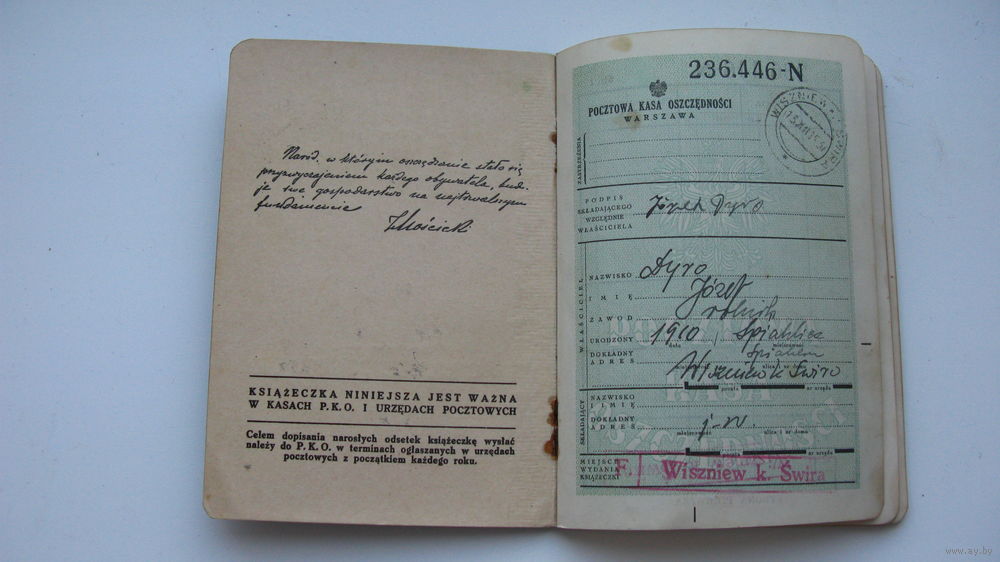 Naród, w którym oszczędzanie stało się
przyzwyczajeniem każdego obywatela, bud-
je swe gospodarstwo na najtrwalszym
fundamencie
IMościcki
KSIĄŻECZKA NINIEJSZA JEST WAŻNA
W KASACH P.K.O. I URZĘDACH POCZTOWYCH
Celem dopisania narosłych odsetek książeczkę wysłać
należy do P.K.O. w terminach ogłaszanych w urzędach
pocztowych z początkiem każdego roku.
236.446-N
POCZTOWA KASA OSZCZĘDNOŚCI
WARSZAWA
ZASTRZEŻENIA
PODPIS
SKŁADAJĄCEGO
WZGLĘDNIE
WŁAŚCICIELA
Józef Dyro
WŁAŚCICIEL
NAZWISKO Dyro
IMIĘ Józef
ZAWÓD rolnik
URODZONY 1910
data miejscowość
DOKŁADNY
ADRES
miejscowość ulica i nr domu
Wiszniew k Świra
poczta nr urzędu
SKŁADAJĄCY
NAZWISKO
I IMIĘ
DOKŁADNY
ADRES j. w.
miejscowość ulica i nr domu
poczta nr urzędu
MIEJSCE
WYDANIA
KSIĄŻECZKI
F. Wiszniew k. Świra
www.ay.by